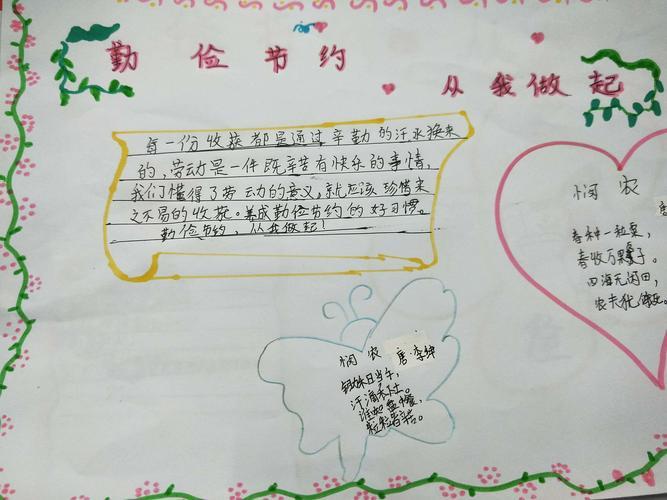 勤俭节约
从我做起
每一份收获都是通过辛勤的汗水换来
的,劳动是一件既辛苦有快乐的事情,
我们懂得了劳动的意义,就应该珍惜来
之不易的收获。养成勤俭节约的好习惯。
勤俭节约,从我做起!
悯农
春种一粒粟,
春收万颗子。
四海无闲田,
农夫犹饿死。
悯农 唐·李绅
锄禾日当午,
汗滴禾下土。
谁知盘中餐,
粒粒皆辛苦。